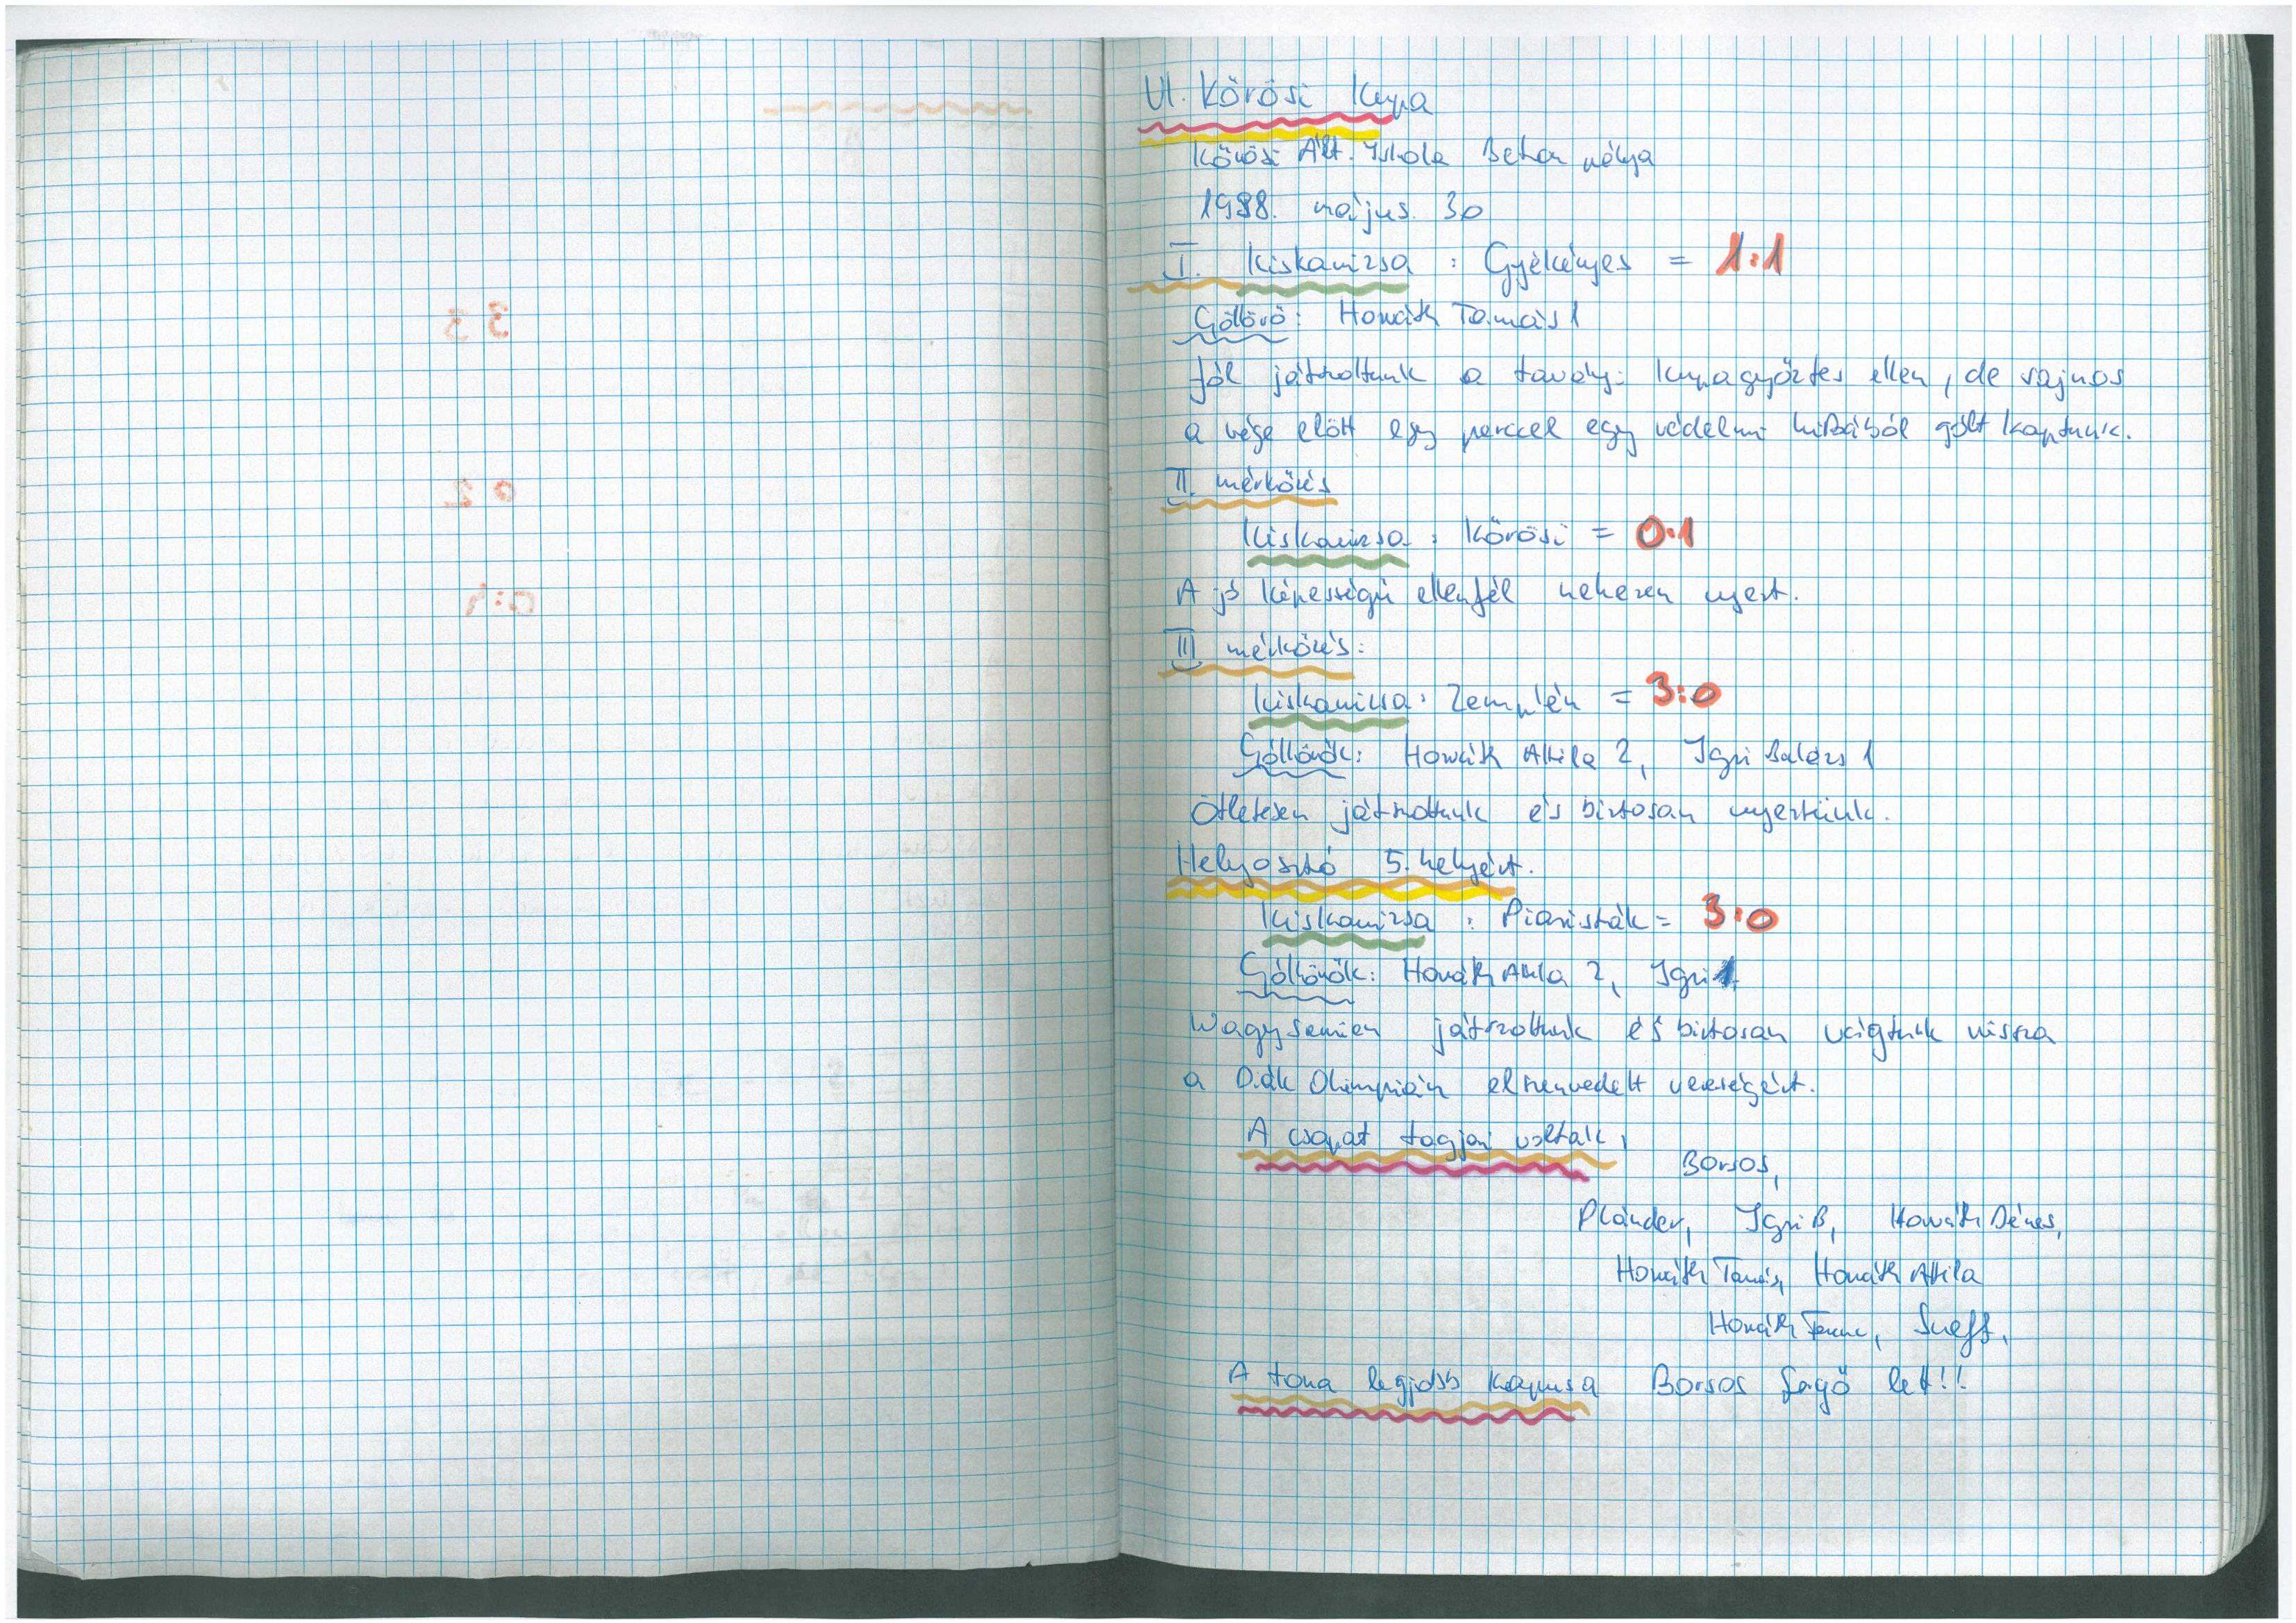 VI. Kőrösi Kupa
Kőrösi Ált. Iskola Beton pálya
1998. május. 30
I. Kiskanizsa : Gyékényes = 1:1
Góllövő: Horváth Tamás 1
Jól játszottunk a tavalyi kupagyőztes ellen, de sajnos
a vége előtt egy perccel egy védelmi hibából gólt kaptunk.
II. mérkőzés
Kiskanizsa : Kőrösi = 0:1
A jó képességű ellenfél nehezen nyert.
III mérkőzés:
Kiskanizsa : Zemplén = 3:0
Góllövők: Horváth Attila 2, Igri Balázs 1
Ötletesen játszottunk és biztosan nyertünk.
Helyosztó 5. helyért.
Kiskanizsa : Piaristák = 3:0
Góllövők: Horváth Attila 2, Igri 1
Nagyszerűen játszottunk és biztosan vágtunk vissza
a Diák Olimpián elszenvedett vereségért.
A csapat tagjai voltak:
Borsos,
Plander, Igri B, Horváth Dénes,
Horváth Tamás, Horváth Attila
Horváth Ferenc, Sneff,
A torna legjobb kapusa Borsos Gergő lett!!